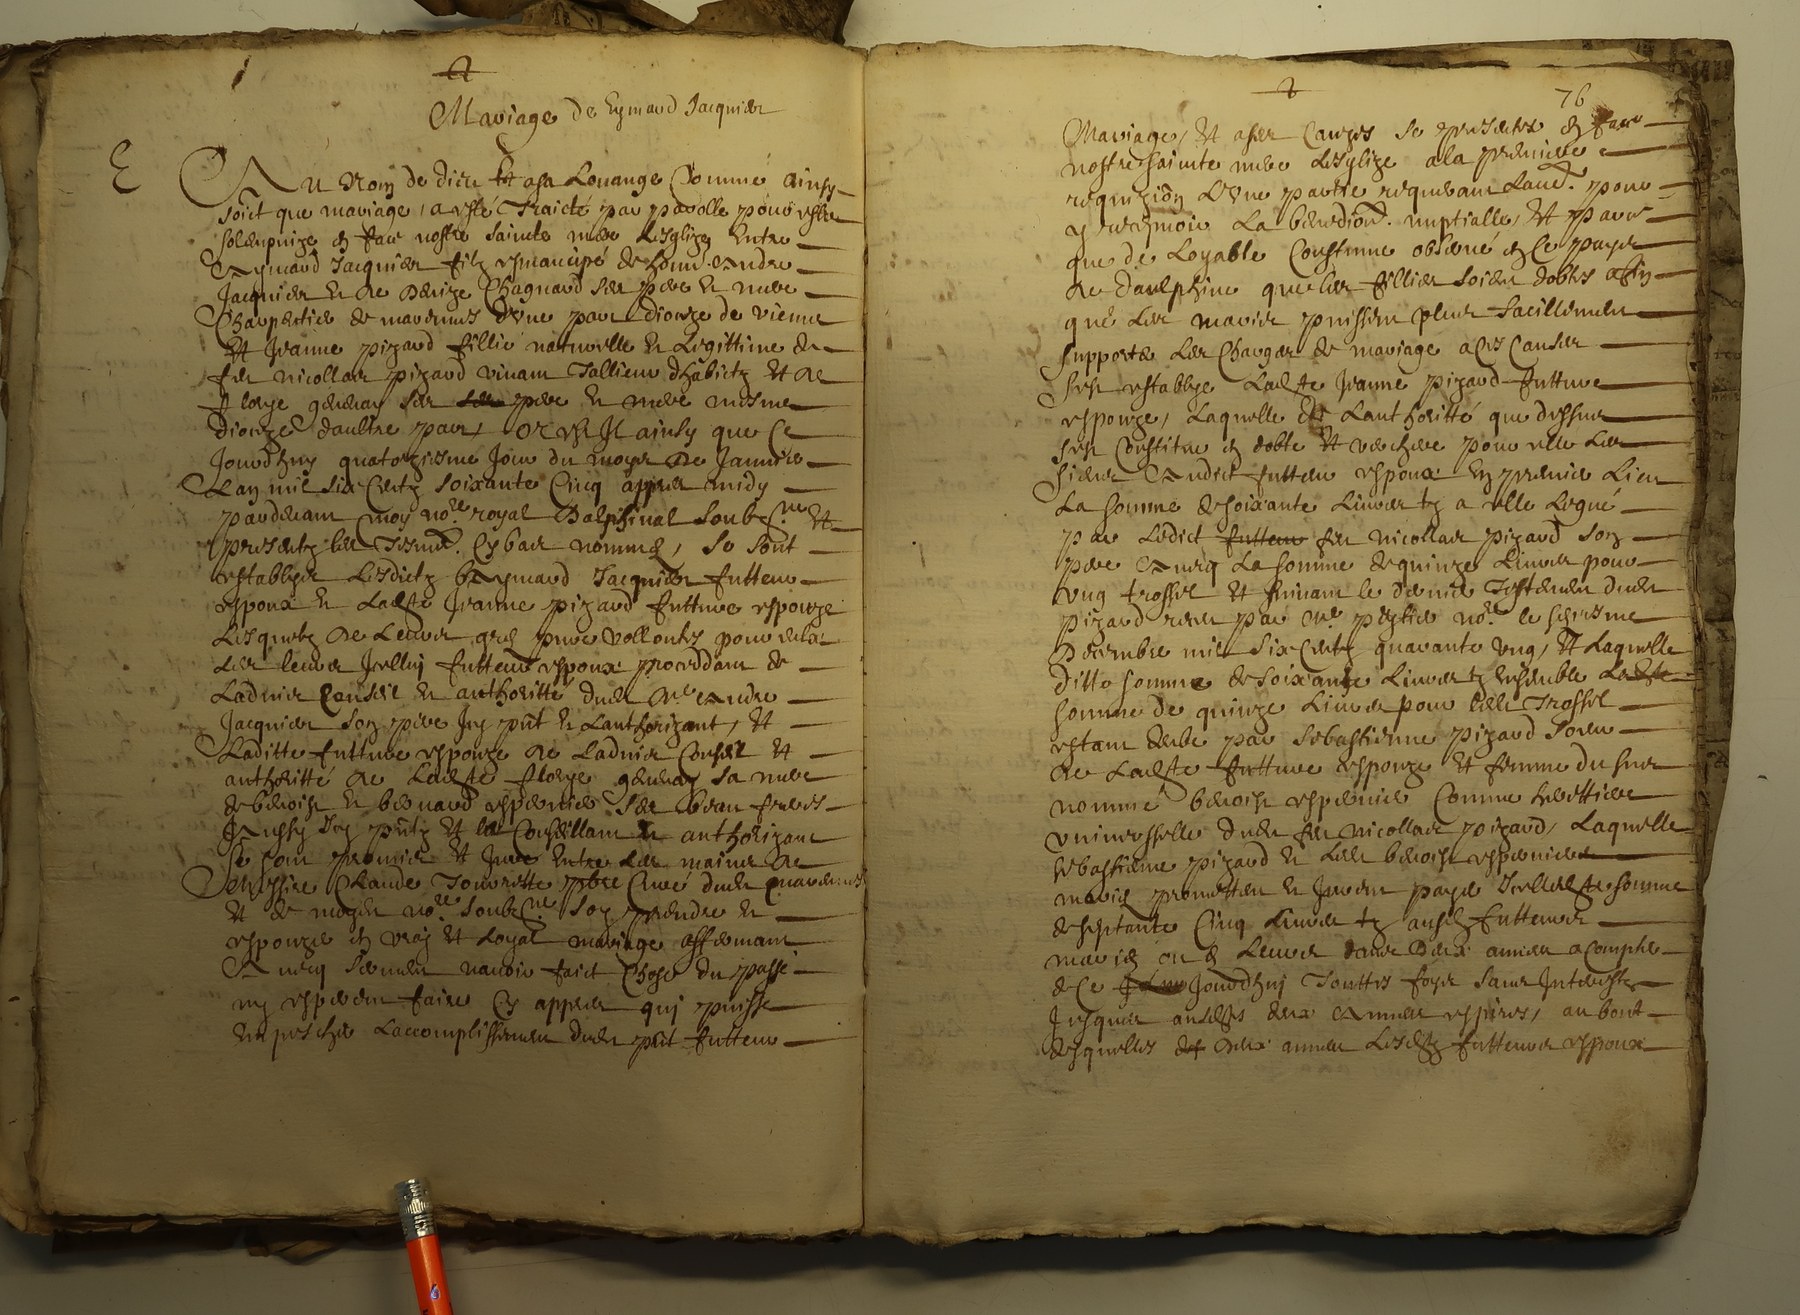 Mariage de Eymard Jacquier
Au Nom de dieu et asa Louange Comme ainsy
soict que mariage, a esté Traicté par parolle pour estre
solempnize en face nostre saincte mere Lesglize Entre
Eymard Jacquier filz esmancipé de honn. Andre
Jacquier et de Denize Chagnard ses pere et mere
Charpentier de marennes d'Une part dioceze de vienne
Et Jeanne pizard fillie naturelle et Legittime de
feu nicollas pizard vivant Tallieur dhabictz Et de
floryе ses pere et mere mesme
dioceze daultre part, or est Il ainsy que Ce
Jourdhuy quatorziesme Jour du moys de Janvier
Lan mil six Centz soixante Cinq appres midy
pardevant moy no.re royal Dalphinal soubz.né Et
presentz les Tesm. Cy bas nommes, se sont
establys Lesdictz Eymard Jacquier futteur
espoux et Ladte Jeanne pizard futture espouze
Lesquelz de Leurs gré pure vollontes pour
Icelluy futteur espoux proceddant de
Ladvis Conseil et authoritté dudt Me Andre
Jacquier son pere Icy pnt et Lauthorizant, Et
Laditte futture espouze de Ladvis Conseil Et
authoritté de Ladte florye sa mere
de benoist et bernard espernier ses beau freres
Aussy Icy pntz Et Conseillant et authorizant
se sont promis Et Jure Entre Les mains de
Messire Claude Touvrette pbre Curé dudt marennes
Et de moydt no.re soubz.né soy prendre et
espouzer en vray Et Loyal mariage affermant
Avecq serment navoir faict Choze du passé
ny esperent faire Cy appres quy puisse
Empescher Laccomplissement dudt pnt futteur
76
Mariage, Et a ses Causes se presenter en face
nostre saincte mere Lesglize ala premiere
requizion L'Une partie requerant Laud. pour
y recepvoir La benedion. nuptialle, Et parce
que de Loyable Coustume observé en Ce pays
de daulphine que les fillies soient dottes affin
que Les maries puissent pleus facillement
supporte Les Charges de mariage aCes Causes
sest establye Ladte Jeanne pizard futture
espouze, Laquelle de Lauthoritté que dessus
sest Constitue en dotte Et verchere pour elle Les
siens Audict futteur espoux En premier Lieu
La somme de soixante Livres tz a elle Legué
par Ledict futteur feu nicollas pizard son
pere Avecq La somme de quinze Livres pour
Ung trossel Et suivant le dernier Testement dudt
pizard receu par Me no.re le
Decembre mil six Centz quarante Ung, Et Laquelle
ditte somme de soixante Livres tz Ensemble Ladte
somme de quinze Livres pour Ledt Trossel
estant deube par sebastienne pizard soeur
de Ladte futture espouze Et femme du sus
nommé benoist espernier Comme herittiere
Universselle dudt feu nicollas pizard, Laquelle
sebastienne pizard et Ledt benoist espernier
maries promettent et Jurent payer Icelledte somme
de septante Cinq Livres tz ausdz futteurs
maries ou a Leurs dans Deux annees aCompter
de Ce Jourdhuy Touttes foys sans Interestz
Jusques ausdes deux Annees expires, au bout
desquelles deux annees Lesdz futteurs espoux